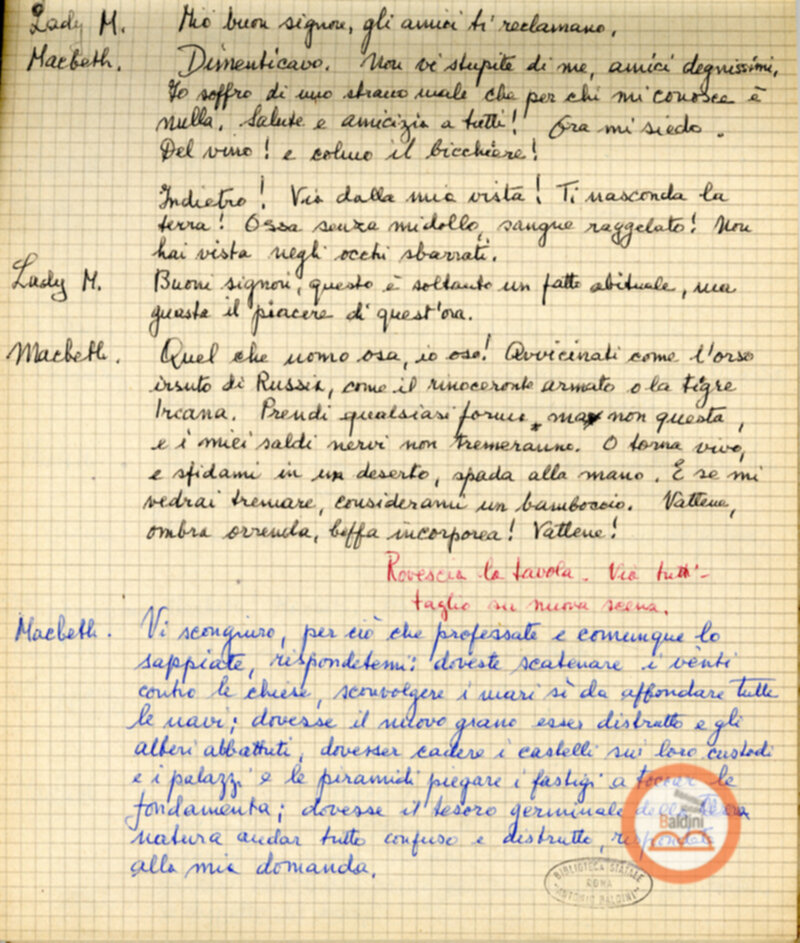 Lady M. Mio buon signore, gli amici ti reclamano.
Macbeth. Dimenticavo. Non vi stupite di me, amici degnissimi.
Io soffro di uno strano male che per chi mi conosce è
nulla. Salute e amicizia a tutti! Ora mi siedo.
Del vino! e colmo il bicchiere!
Indietro! Via dalla mia vista! Ti nasconda la
terra! Ossa senza midollo, sangue raggelato! Non
hai vista negli occhi sbarrati.
Lady M. Buoni signori, questo è soltanto un fatto abituale, ma
guasta il piacere di quest'ora.
Macbeth. Quel che uomo osa, io oso! Avvicinati come l'orso
irsuto di Russia, come il rinoceronte armato o la tigre
Ircana. Prendi qualsiasi forma, ma non questa,
e i miei saldi nervi non tremeranno. O torna vivo,
e sfidami in un deserto, spada alla mano. E se mi
vedrai tremare, considerami un bamboccio. Vattene,
ombra orrenda, beffa incorporea! Vattene!
Rovescia la tavola. Via tutti -
taglio su nuova scena.
Macbeth. Vi scongiuro, per ciò che professate e comunque lo
sappiate, rispondetemi: doveste scatenare i vènti
contro le chiese, sconvolgere i mari sì da affondare tutte
le navi; dovesse il nuovo grano esser distrutto e gli
alberi abbattuti, dovesser cadere i castelli su' loro custodi
e i palazzi e le piramidi piegare i fastigi a toccar le
fondamenta; dovesse il tesoro germinale della stessa
natura andar tutto confuso e distrutto, rispondete
alla mia domanda.
Baldini
BIBLIOTECA STATALE
ROMA
"ANTONIO BALDINI"